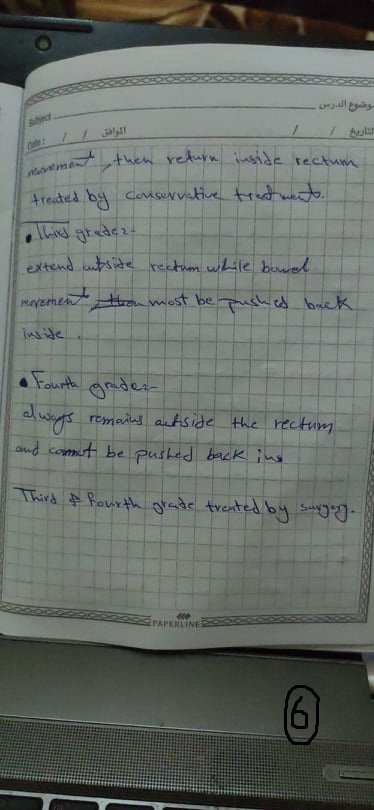 موضوع الدرس
Subject
التاريخ / / الموافق / / Date:
movement, then return inside rectum
treated by conservative treatment.
• Third grade:-
extend outside rectum while bowel
movement, then most be pushed back
inside.
• Fourth grade:-
always remains outside the rectum
and cannot be pushed back ins
Third & fourth grade treated by surgery.
PAPERLINE
6